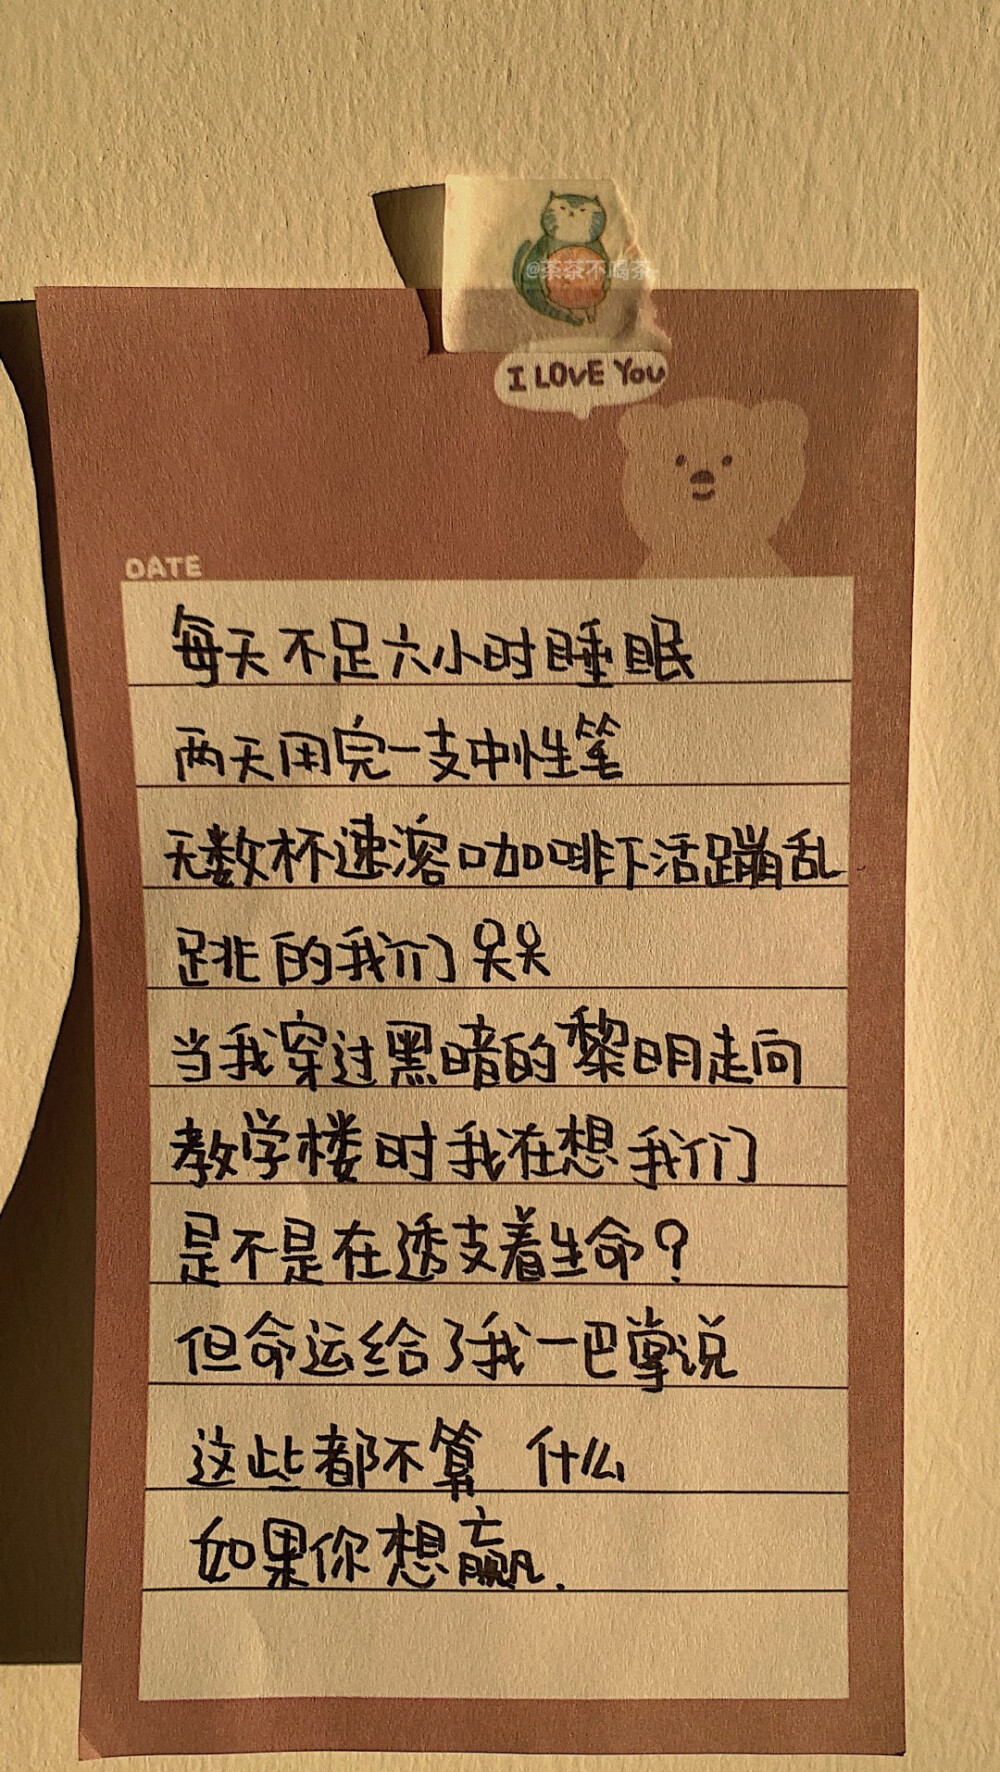 @茶茶不喝茶
I LOVE YOU
DATE
每天不足六小时睡眠
两天用完一支中性笔
无数杯速溶咖啡下活蹦乱
跳的我们
当我穿过黑暗的黎明走向
教学楼时我在想我们
是不是在透支着生命？
但命运给了我一巴掌说
这些都不算 什么
如果你想赢.